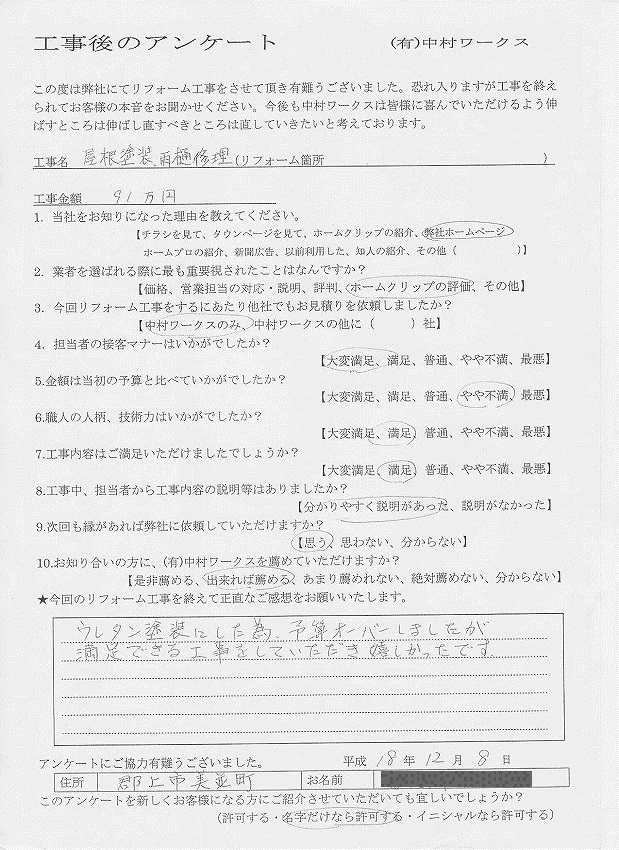 工事後のアンケート (有)中村ワークス
この度は弊社にてリフォーム工事をさせて頂き有難うございました。恐れ入りますが工事を終え
られてお客様の本音をお聞かせください。今後も中村ワークスは皆様に喜んでいただけるよう伸
ばすところは伸ばし直すべきところは直していきたいと考えております。
工事名 屋根塗装、雨樋修理 (リフォーム箇所 )
工事金額 91万円
1. 当社をお知りになった理由を教えてください。
【チラシを見て、タウンページを見て、ホームクリップの紹介、弊社ホームページ
ホームプロの紹介、新聞広告、以前利用した、知人の紹介、その他（ )】
2. 業者を選ばれる際に最も重要視されたことはなんですか？
【価格、営業担当の対応・説明、評判、ホームクリップの評価、その他】
3. 今回リフォーム工事をするにあたり他社でもお見積りを依頼しましたか？
【中村ワークスのみ、中村ワークスの他に（ ）社】
4. 担当者の接客マナーはいかがでしたか？
【大変満足、満足、普通、やや不満、最悪】
5.金額は当初の予算と比べていかがでしたか？
【大変満足、満足、普通、やや不満、最悪】
6.職人の人柄、技術力はいかがでしたか？
【大変満足、満足、普通、やや不満、最悪】
7.工事内容はご満足いただけましたでしょうか？
【大変満足、満足、普通、やや不満、最悪】
8.工事中、担当者から工事内容の説明等はありましたか？
【分かりやすく説明があった、説明がなかった】
9.次回も縁があれば弊社に依頼していただけますか？
【思う、思わない、分からない】
10.お知り合いの方に、(有)中村ワークスを薦めていただけますか？
【是非薦める、出来れば薦める、あまり薦めれない、絶対薦めない、分からない】
★今回のリフォーム工事を終えて正直なご感想をお願いいたします。
ウレタン塗装にした為、予算オーバーしましたが
満足できる工事をしていただき嬉しかったです。
アンケートにご協力有難うございました。 平成 18年 12月 8日
住所 郡上市美並町 お名前
このアンケートを新しくお客様になる方にご紹介させていただいても宜しいでしょうか？
（許可する・名字だけなら許可する・イニシャルなら許可する）